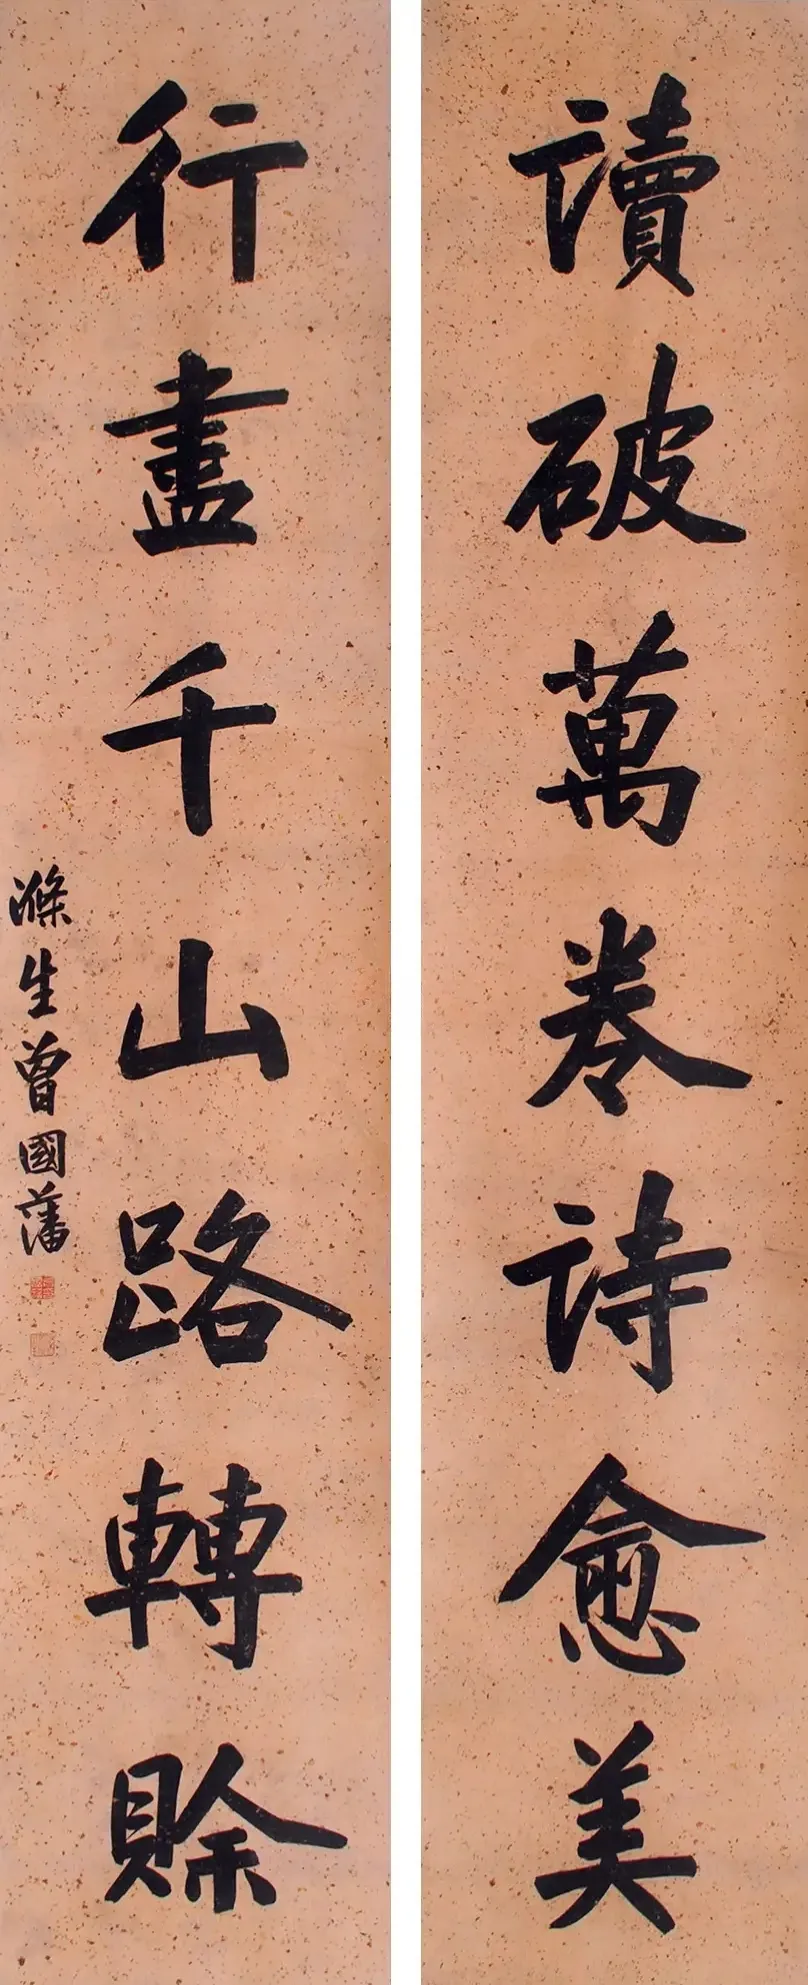 讀破萬卷詩愈美
行盡千山路轉賒
滌生曾國藩